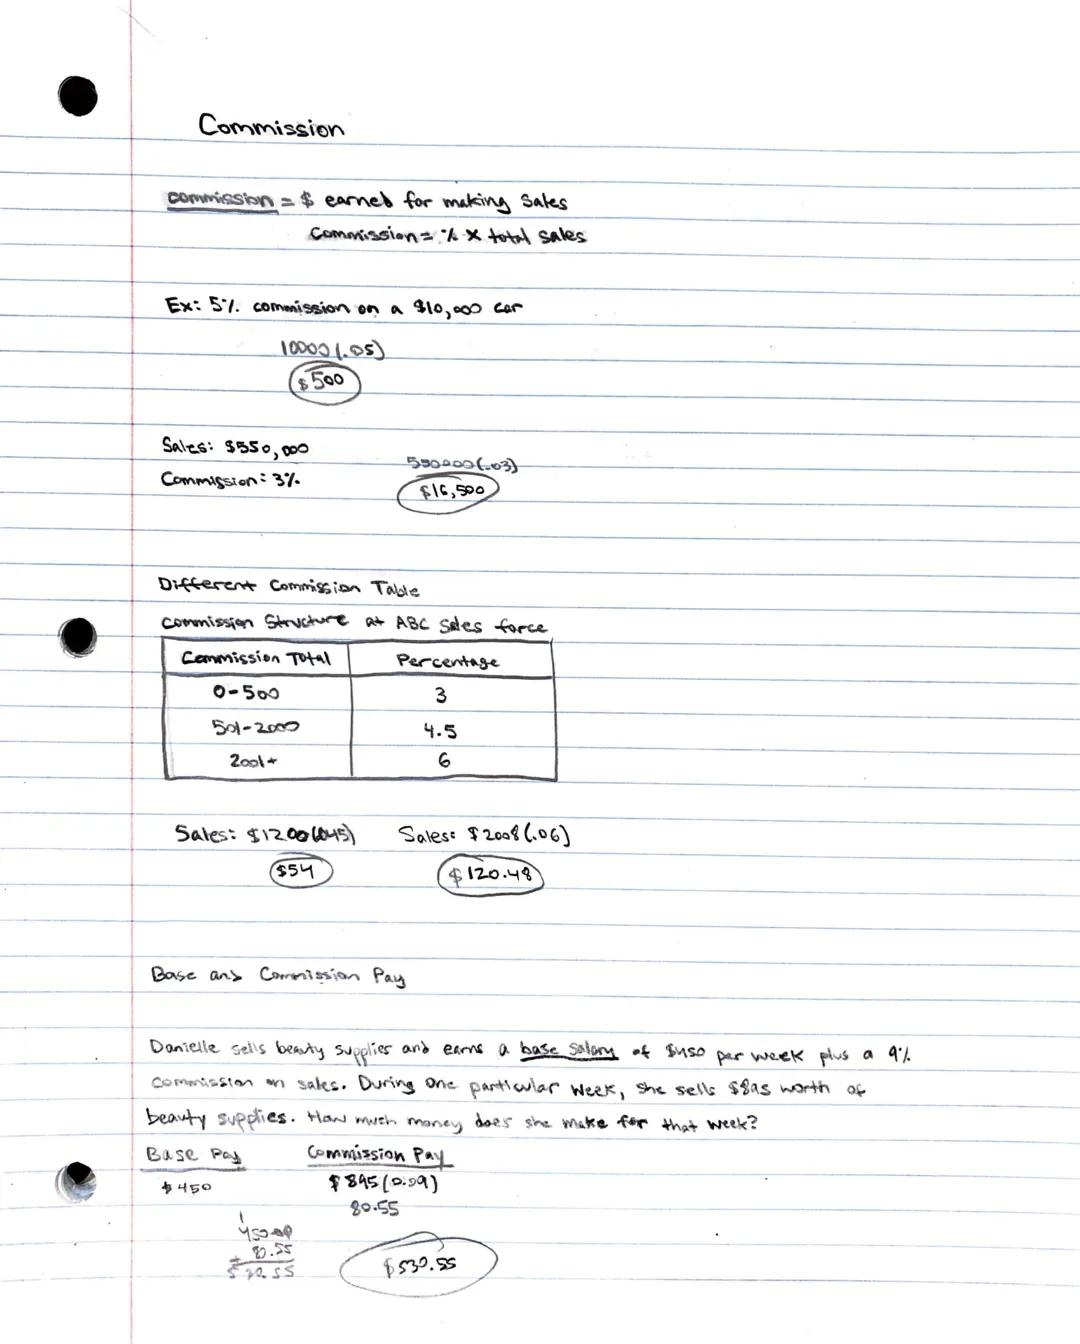 Commission
commission = $ earned for making sales
Commission = % x total sales
Ex: 5% commission on a $10,000 car
10000(.05)
$500
Sales: $550,000
Commission: 3%
550000(.03)
$16,500
Different Commission Table
Commission Structure at ABC Sales force
Commission Total Percentage
0-500 3
501-2000 4.5
2001+ 6
Sales: $1200(.045) Sales: $2008(.06)
$54 $120.48
Base and Commission Pay
Danielle sells beauty supplies and earns a base salary of $450 per week plus a 9%
commission on sales. During one particular week, she sells $895 worth of
beauty supplies. How much money does she make for that week?
Base Pay Commission Pay
$450 $895(0.09)
80.55
1
450.00
+ 80.55
530.55
$530.55